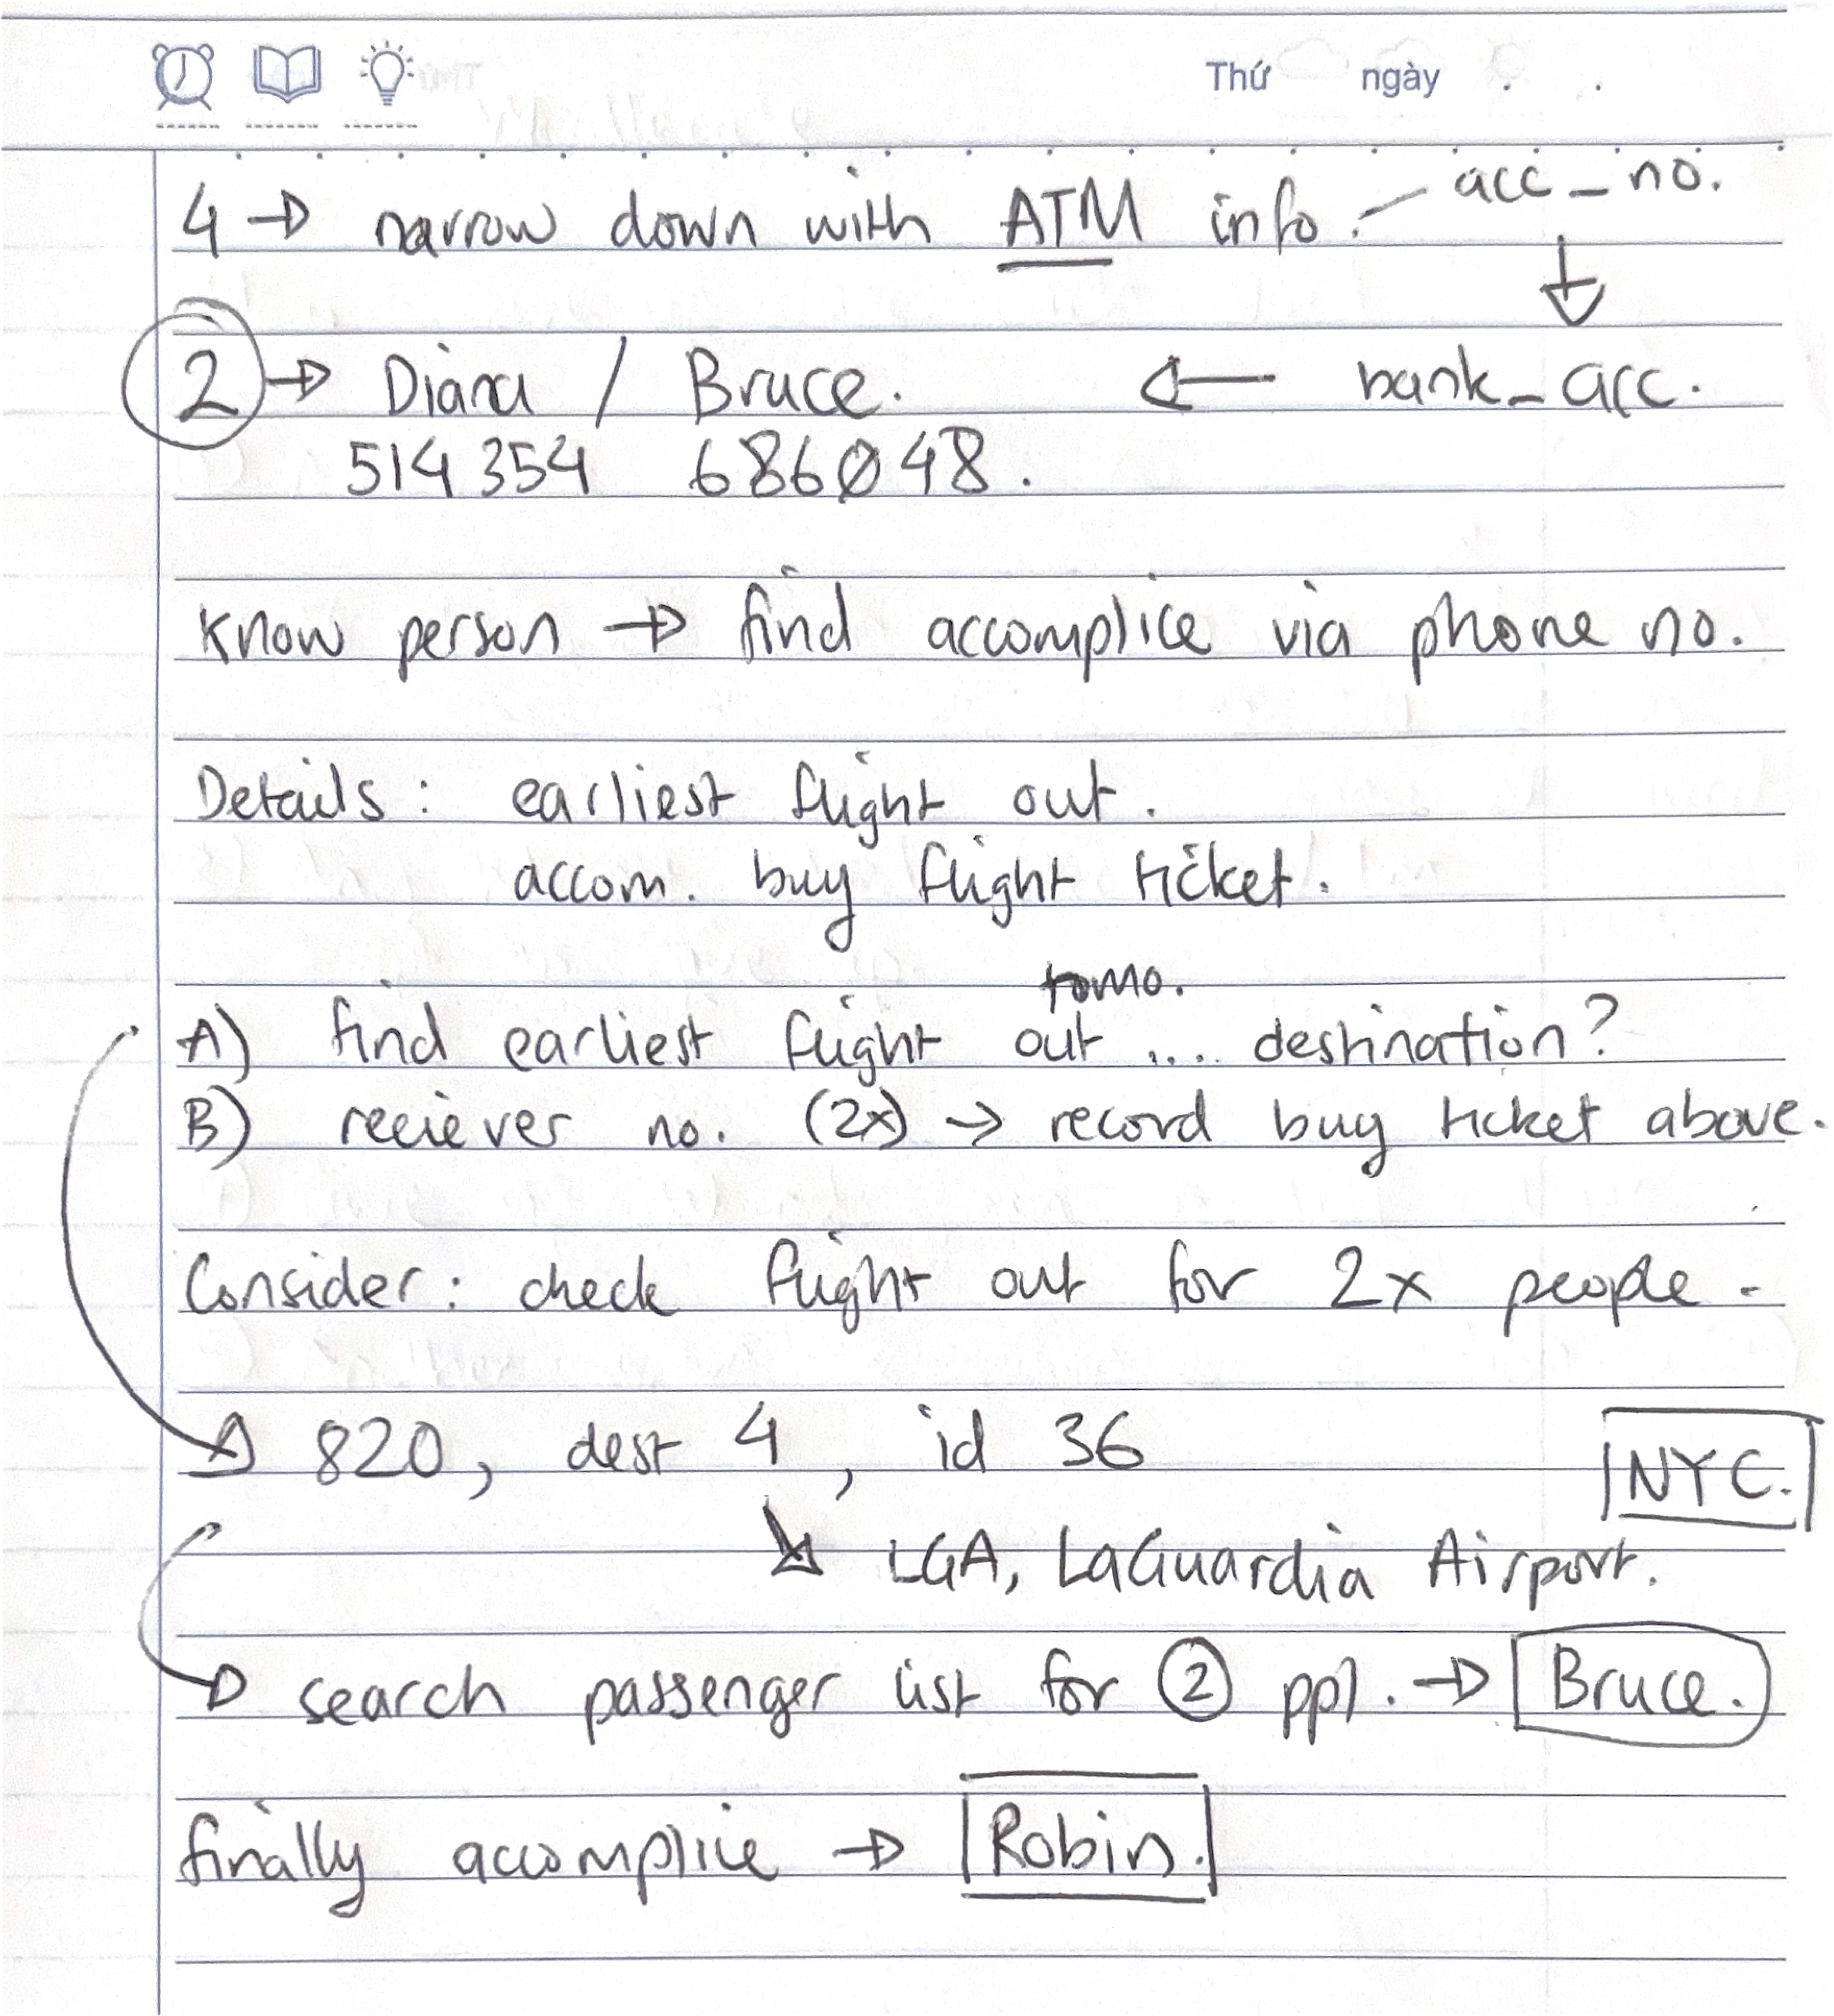 Thứ ngày . .
4 → narrow down with ATM info. – acc_no.
↓
2 → Diana / Bruce. ← bank_acc.
514354 686048.
Know person → find accomplice via phone no.
Details: earliest flight out.
accom. buy flight ticket.
tomo.
A) find earliest flight out .... destination?
B) reciever no. (2x) → record buy ticket above.
Consider: check flight out for 2x people.
→ 820, dest 4, id 36 NYC.
↘ LGA, LaGuardia Airport.
→ search passenger list for ② ppl. → Bruce.
finally accomplice → Robin.